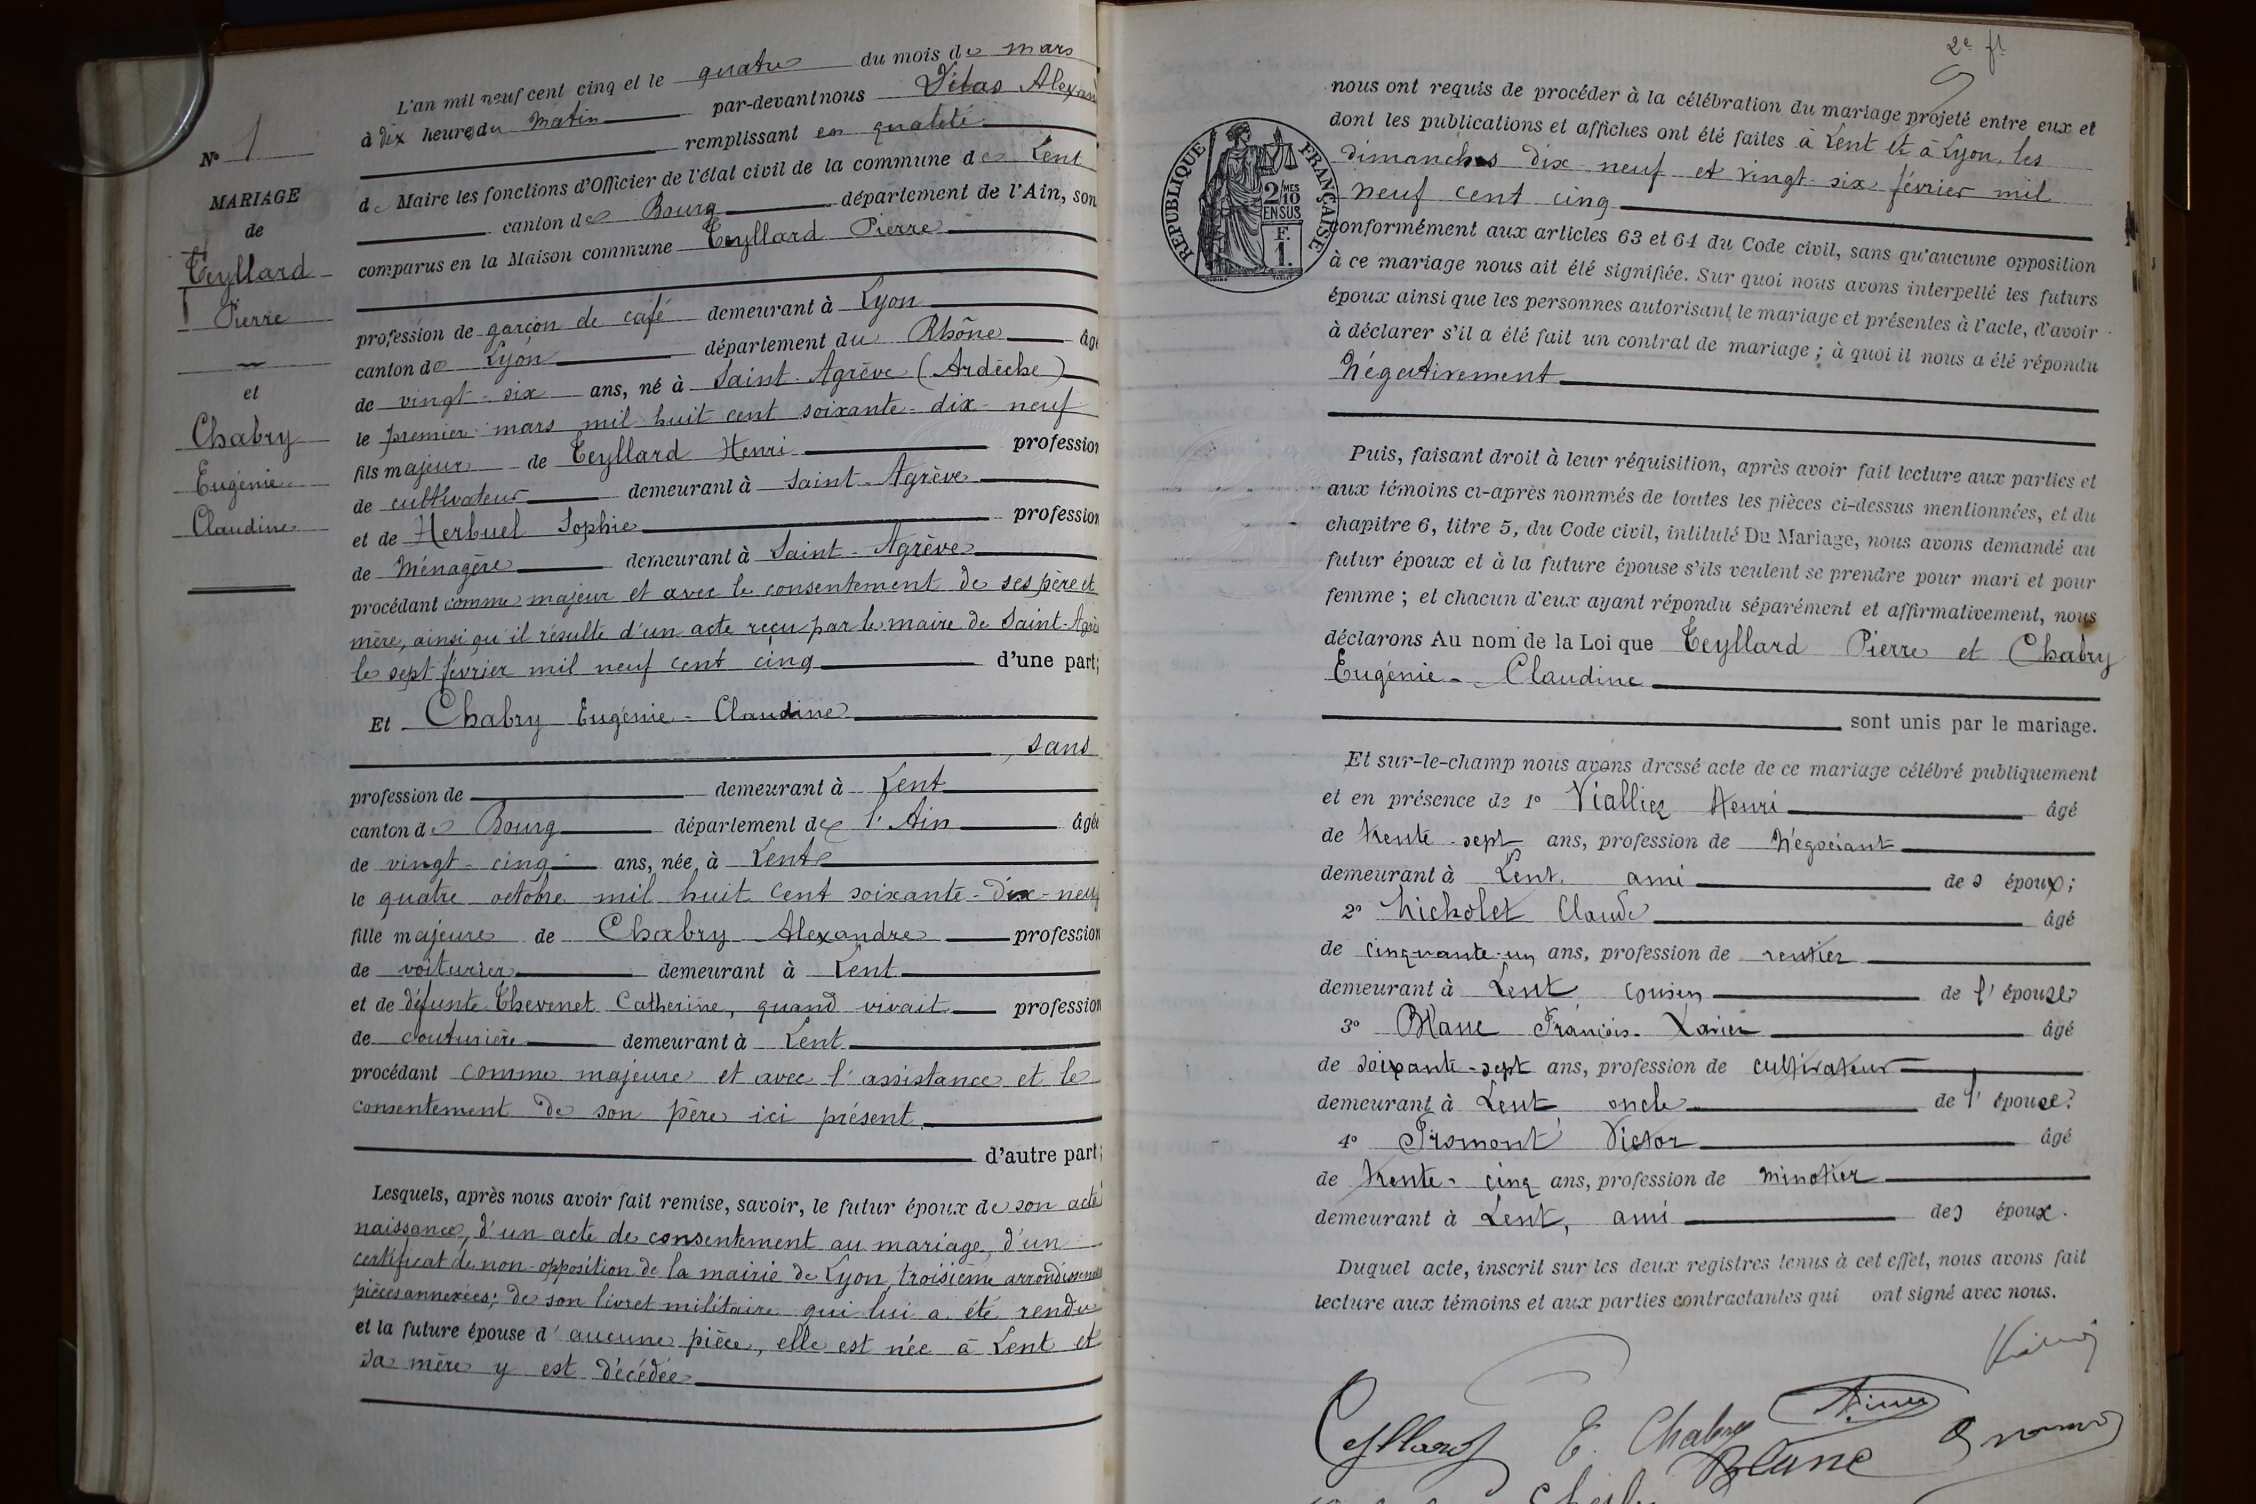 L'an mil neuf cent cinq et le quatre du mois de mars
à dix heures du matin par-devant nous Vitas Alexan
remplissant en qualité
de Maire les fonctions d'Officier de l'état civil de la commune de Lent
canton de Bourg département de l'Ain, son
comparus en la Maison commune Teyllard Pierre
profession de garçon de café demeurant à Lyon
canton de Lyon département du Rhône âgé
de vingt-six ans, né à Saint-Agrève (Ardèche)
le premier mars mil huit cent soixante-dix-neuf
fils majeur de Teyllard Henri profession
de cultivateur demeurant à Saint-Agrève
et de Herbuel Sophie profession
de Ménagère demeurant à Saint-Agrève
procédant comme majeur et avec le consentement de ses père et
mère, ainsi qu'il résulte d'un acte reçu par le maire de Saint-Agrè
le sept février mil neuf cent cinq d'une part;
Et Chabry Eugénie-Claudine
, sans
profession de demeurant à Lent
canton de Bourg département de l'Ain âgée
de vingt-cinq ans, née à Lent
le quatre octobre mil huit cent soixante-dix-neuf
fille majeure de Chabry Alexandre profession
de voiturier demeurant à Lent
et de défunte Thevenet Catherine, quand vivait profession
de couturière demeurant à Lent
procédant comme majeure et avec l'assistance et le
consentement de son père ici présent,
d'autre part;
Lesquels, après nous avoir fait remise, savoir, le futur époux de son acte
naissance, d'un acte de consentement au mariage, d'un
certificat de non-opposition de la mairie de Lyon, troisième arrondissement
pièces annexées; de son livret militaire qui lui a été rendu
et la future épouse d'aucune pièce, elle est née à Lent et
sa mère y est décédée
N° 1
MARIAGE
de
Teyllard
Pierre
et
Chabry
Eugénie
Claudine
2e ft
RÉPUBLIQUE FRANÇAISE
2/10 MES
EN SUS
F.
1.
nous ont requis de procéder à la célébration du mariage projeté entre eux et
dont les publications et affiches ont été faites à Lent et à Lyon, les
dimanches dix-neuf et vingt-six février mil
neuf cent cinq
conformément aux articles 63 et 64 du Code civil, sans qu'aucune opposition
à ce mariage nous ait été signifiée. Sur quoi nous avons interpellé les futurs
époux ainsi que les personnes autorisant le mariage et présentes à l'acte, d'avoir
à déclarer s'il a été fait un contrat de mariage; à quoi il nous a été répondu
Négativement
Puis, faisant droit à leur réquisition, après avoir fait lecture aux parties et
aux témoins ci-après nommés de toutes les pièces ci-dessus mentionnées, et du
chapitre 6, titre 5, du Code civil, intitulé Du Mariage, nous avons demandé au
futur époux et à la future épouse s'ils veulent se prendre pour mari et pour
femme; et chacun d'eux ayant répondu séparément et affirmativement, nous
déclarons Au nom de la Loi que Teyllard Pierre et Chabry
Eugénie-Claudine
sont unis par le mariage.
Et sur-le-champ nous avons dressé acte de ce mariage célébré publiquement
et en présence de 1° Viallier Henri âgé
de trente-sept ans, profession de Négociant
demeurant à Lent, ami des époux;
2° Nicholet Claude âgé
de cinquante-un ans, profession de rentier
demeurant à Lent, cousin de l'épouse
3° Blanc François-Xavier âgé
de soixante-sept ans, profession de cultivateur
demeurant à Lent oncle de l'épouse
4° Fromont Victor âgé
de trente-cinq ans, profession de minotier
demeurant à Lent, ami des époux.
Duquel acte, inscrit sur les deux registres tenus à cet effet, nous avons fait
lecture aux témoins et aux parties contractantes qui ont signé avec nous.
Teyllard E. Chabry
Blanc